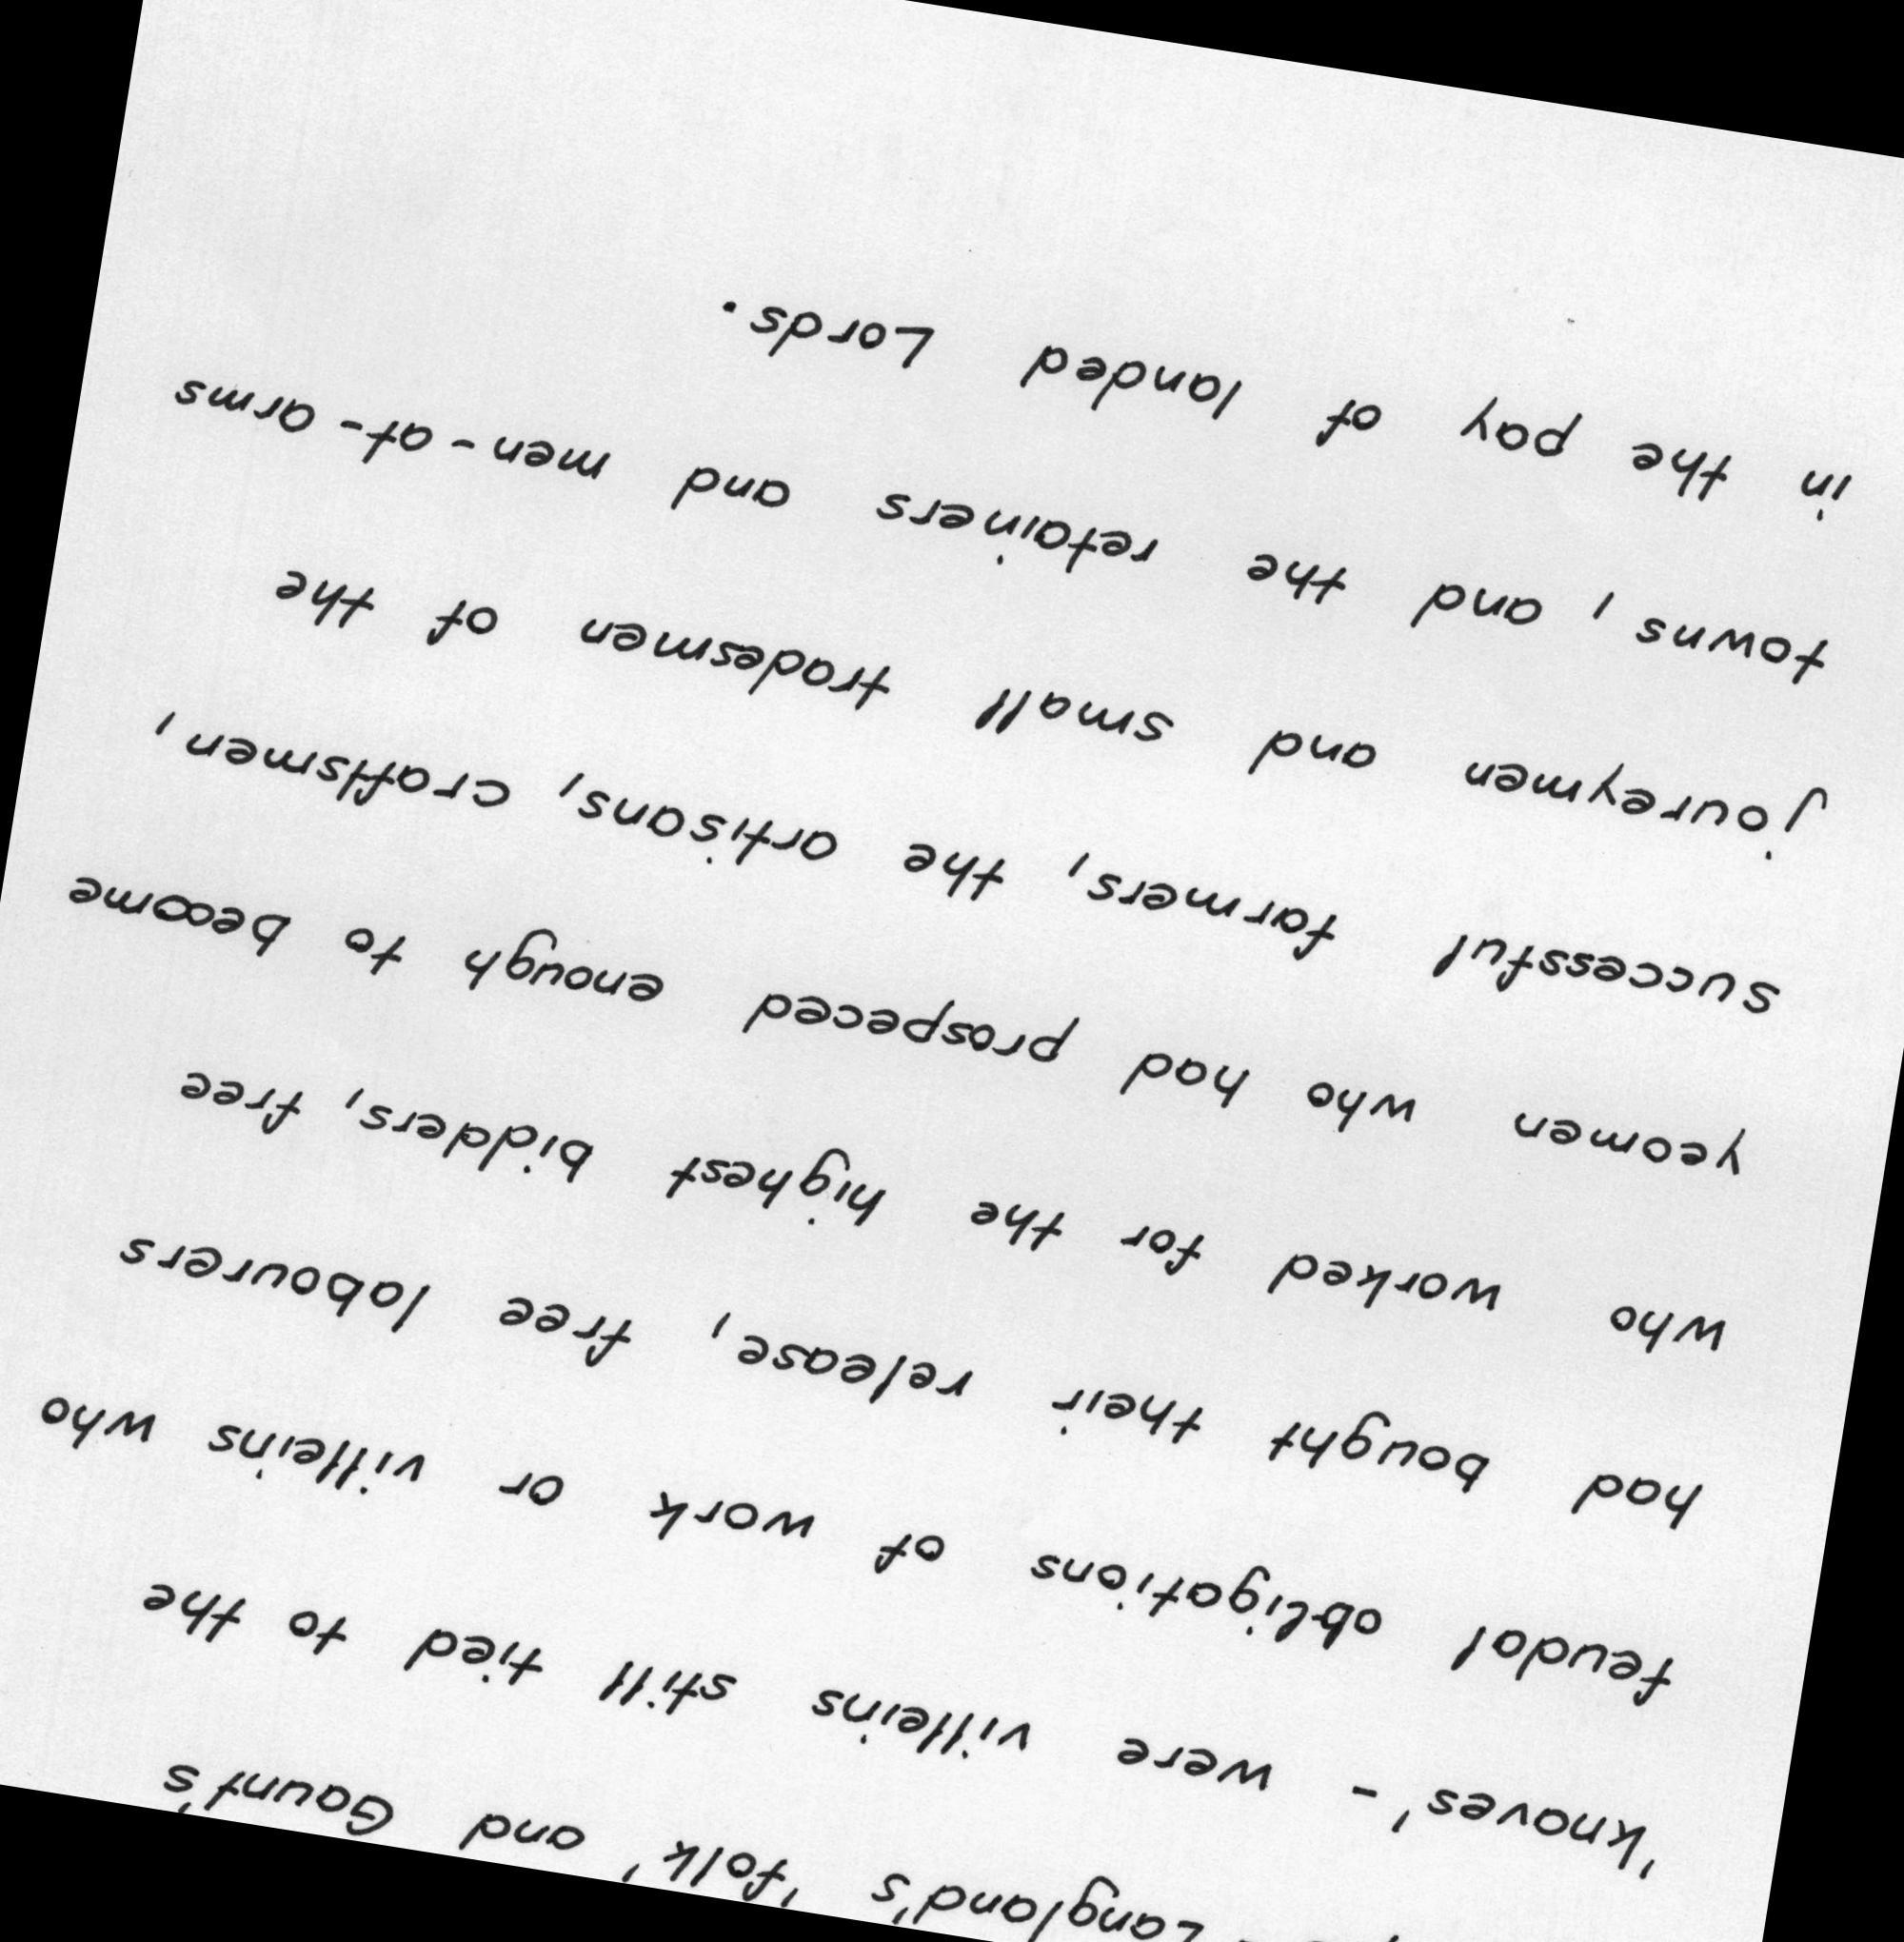 - Langland's 'folk' and Gaunt's
'knaves' - were villeins still tied to the
feudal obligations of work or villeins who
had bought their release, free labourers
who worked for the highest bidders, free
yeomen who had prospeced enough to become
successful farmers, the artisans, craftsmen,
joureymen and small tradesmen of the
towns, and the retainers and men-at-arms
in the pay of landed Lords.